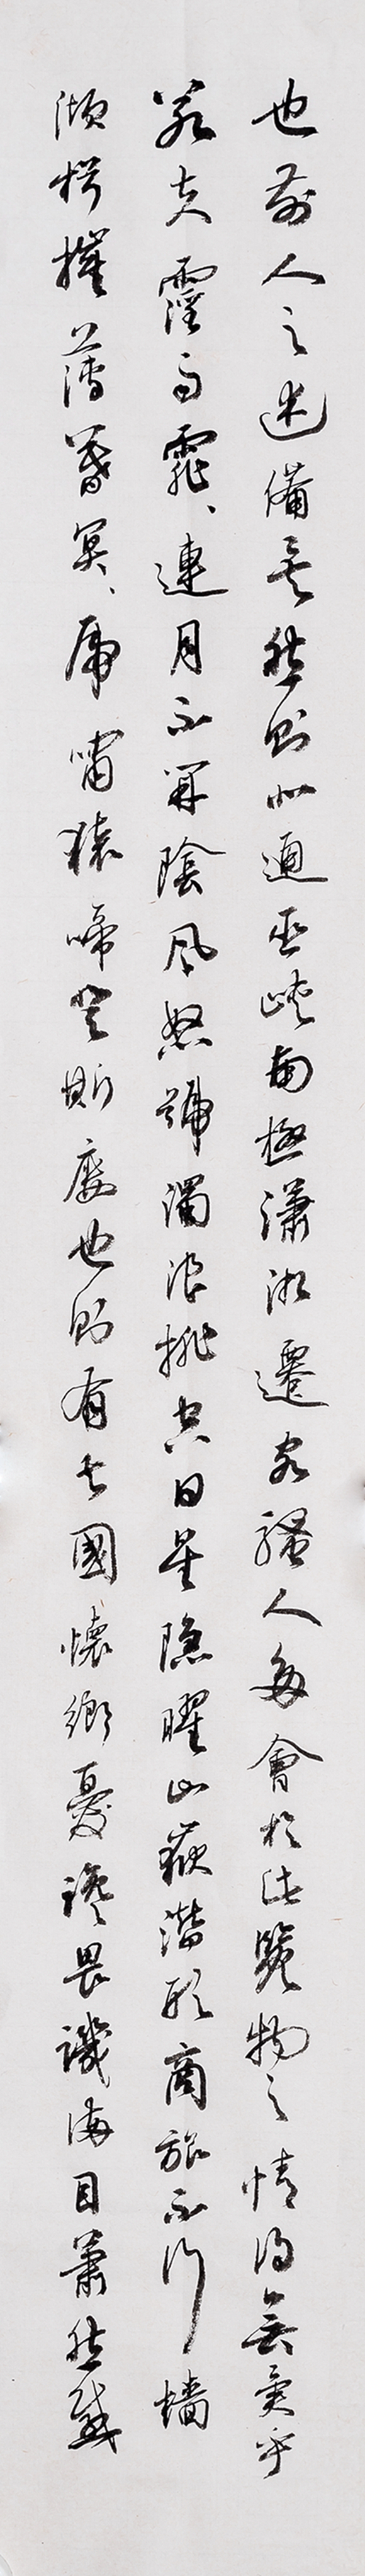 也前人之述備矣然則北通巫峽南極瀟湘遷客騷人多會於此覽物之情得無異乎
若夫霪雨霏、連月不開陰風怒號濁浪排空日星隱曜山嶽潛形商旅不行檣
傾楫摧薄暮冥、虎嘯猿啼登斯廔也則有去國懷鄉憂讒畏譏滿目蕭然感